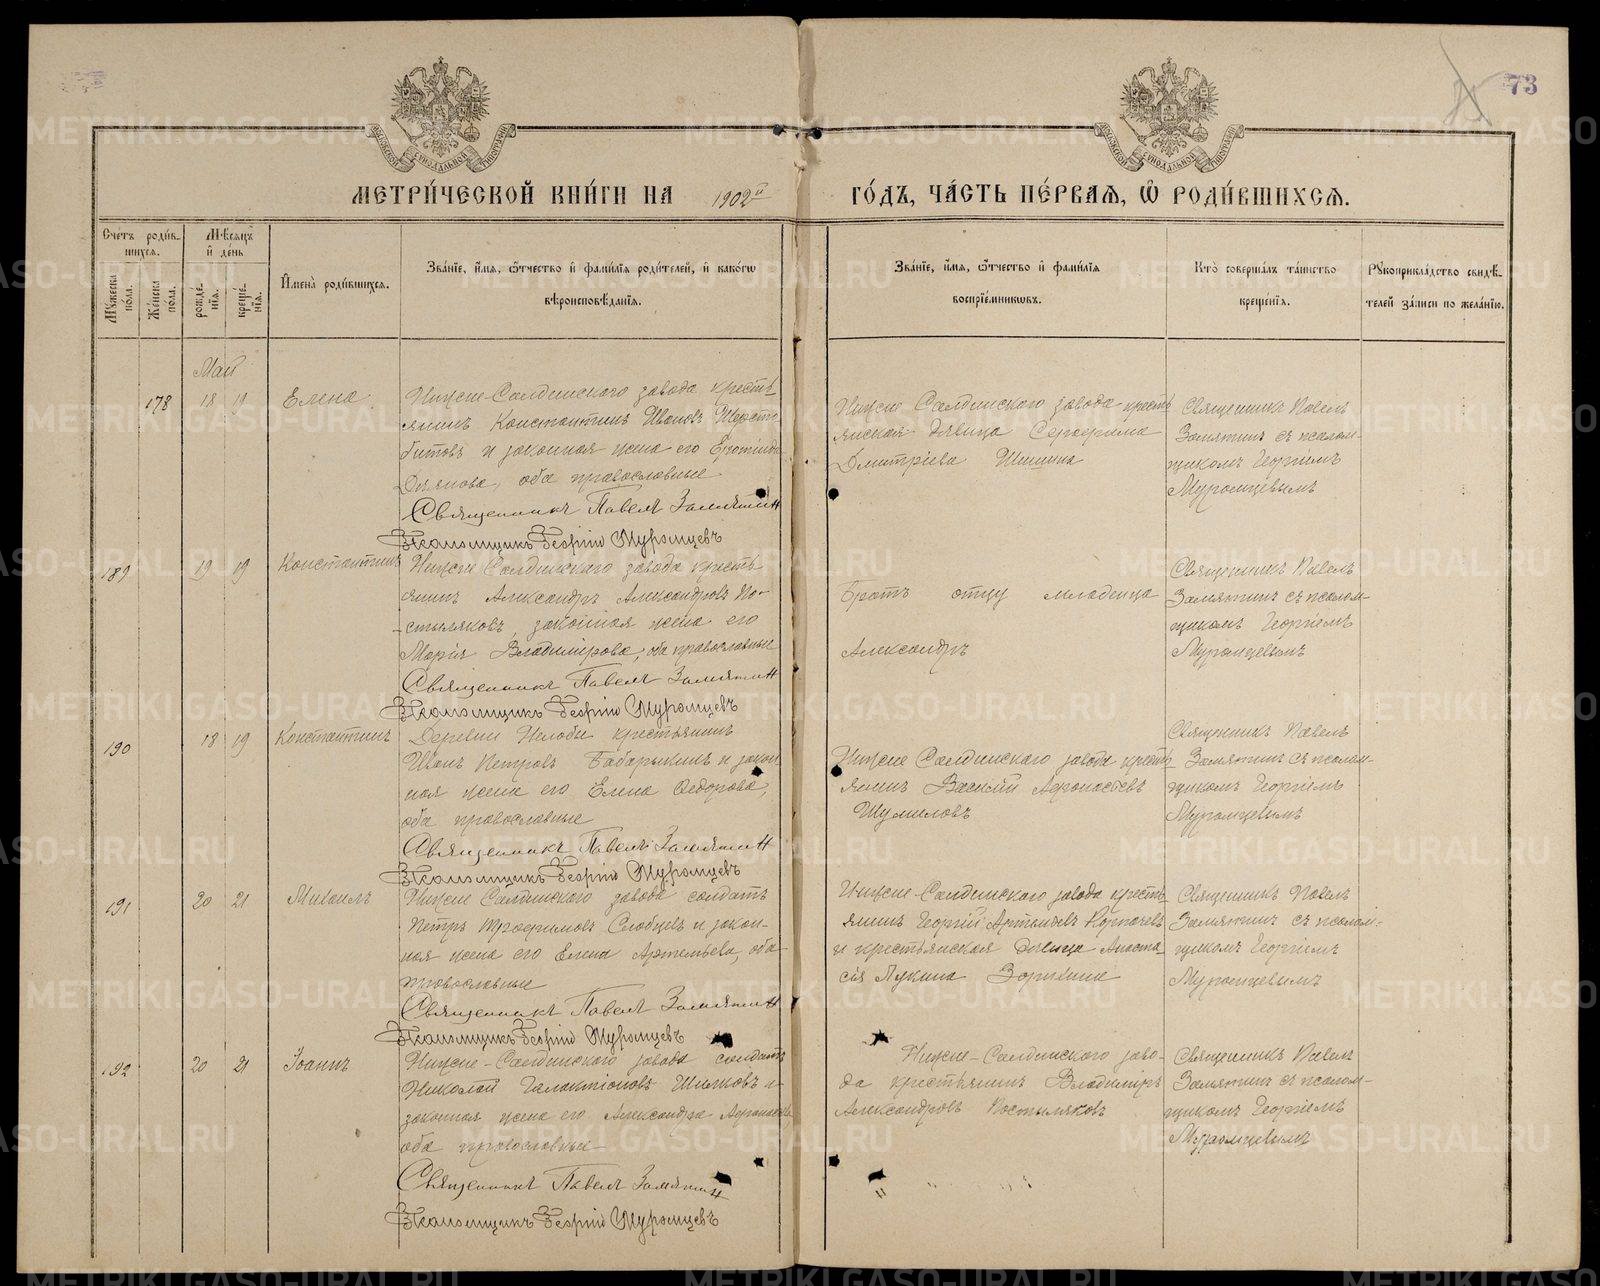 73
МОСКОВСКОЙ СѴНОДАЛЬНОЙ ТИПОГРАФІИ
МОСКОВСКОЙ СѴНОДАЛЬНОЙ ТИПОГРАФІИ
МЕТРИ́ЧЕСКОЙ КНИ́ГИ НА 1902й ГО́ДЪ, ЧА́СТЬ ПЕ́РВАѦ, Ѡ҆ РОДИ́ВШИХСѦ.
Сче́тъ роди́в-
шихсѧ.
Мꙋ́жеска пола.
Же́нска пола.
Мѣ́сѧцъ
и҆ де́нь
рожде́-
нїѧ.
креще́-
нїѧ.
И҆мена̀ роди́вшихсѧ.
Зва́нїе, и҆́мѧ, ѻ҆́тчество и҆ фами́лїѧ роди́телей, и҆ како́гѡ
вѣроисповѣ́данїѧ.
Зва́нїе, и҆́мѧ, ѻ҆́тчество и҆ фами́лїѧ
воспрїе́мниковъ.
Кто̀ соверша́лъ та́инство
креще́нїѧ.
Рꙋкоприкла́дство свидѣ́-
телей за́писи по жела́нїю.
Май
178 18 19 Елена
Нижне-Салдинскаго завода кресть-
янинъ Константинъ Ивановъ
битовъ и законная жена его
оба православные
Священникъ Павелъ Замятин
Псаломщикъ Георгій Муромцевъ
Нижне Салдинскаго завода кресть-
янская дѣвица Серафима
Дмитріева Шишина
Священникъ Павелъ
Замятинъ съ псалом-
щикомъ Георгіемъ
Муромцевымъ
189 19 19 Константинъ
Нижне Салдинскаго завода кресть-
янинъ Александръ Александровъ По-
стыляковъ, законная жена его
Марія Владимірова, оба православные
Священникъ Павелъ Замятин
Псаломщикъ Георгій Муромцевъ
Братъ отцу младенца
Александръ
Священникъ Павелъ
Замятинъ съ псалом-
щикомъ Георгіемъ
Муромцевымъ
190 18 19 Константинъ
Деревни Нелобы крестьянинъ
Иванъ Петровъ Бабарыкинъ и закон-
ная жена его Елена Ѳедорова,
оба православные
Священникъ Павелъ Замятин
Псаломщикъ Георгій Муромцевъ
Нижне Салдинскаго завода кресть-
янинъ Василій Афонасьевъ
Шумиловъ
Священникъ Павелъ
Замятинъ съ псалом-
щикомъ Георгіемъ
Муромцевымъ
191 20 21 Михаилъ
Нижне Салдинскаго завода солдатъ
Петръ Трофимовъ Слобцевъ и закон-
ная жена его Елена Артемьева, оба
православные
Священникъ Павелъ Замятин
Псаломщикъ Георгій Муромцевъ
Нижне-Салдинскаго завода кресть-
янинъ Георгій
и крестьянская дѣвица Анаста-
сія Лукина Зорихина
Священникъ Павелъ
Замятинъ съ псалом-
щикомъ Георгіемъ
Муромцевымъ
192 20 21 Іоаннъ
Нижне-Салдинскаго завода солдатъ
Николай Галактіоновъ и
законная жена его Александра
оба православные
Священникъ Павелъ Замятин
Псаломщикъ Георгій Муромцевъ
Нижне-Салдинскаго заво-
да крестьянинъ Владиміръ
Александровъ Постыляковъ
Священникъ Павелъ
Замятинъ съ псалом-
щикомъ Георгіемъ
Муромцевымъ
METRIKI.GASO-URAL.RU